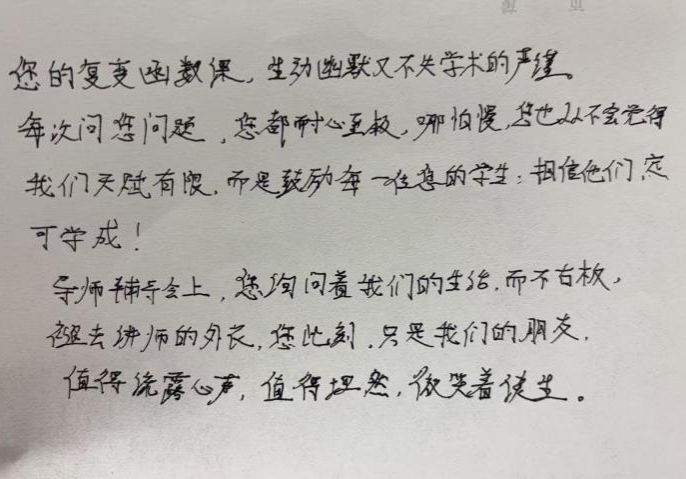 您的复变函数课，生动幽默又不失学术的严谨。
每次问您问题，您都耐心至极，哪怕慢，您也从不会觉得
我们天赋有限，而是鼓励每一位您的学生：相信他们定
可学成！
导师辅导会上，您询问着我们的生活，而不古板，
褪去讲师的外衣，您此刻，只是我们的朋友，
值得流露心声，值得坦然，微笑着使生。